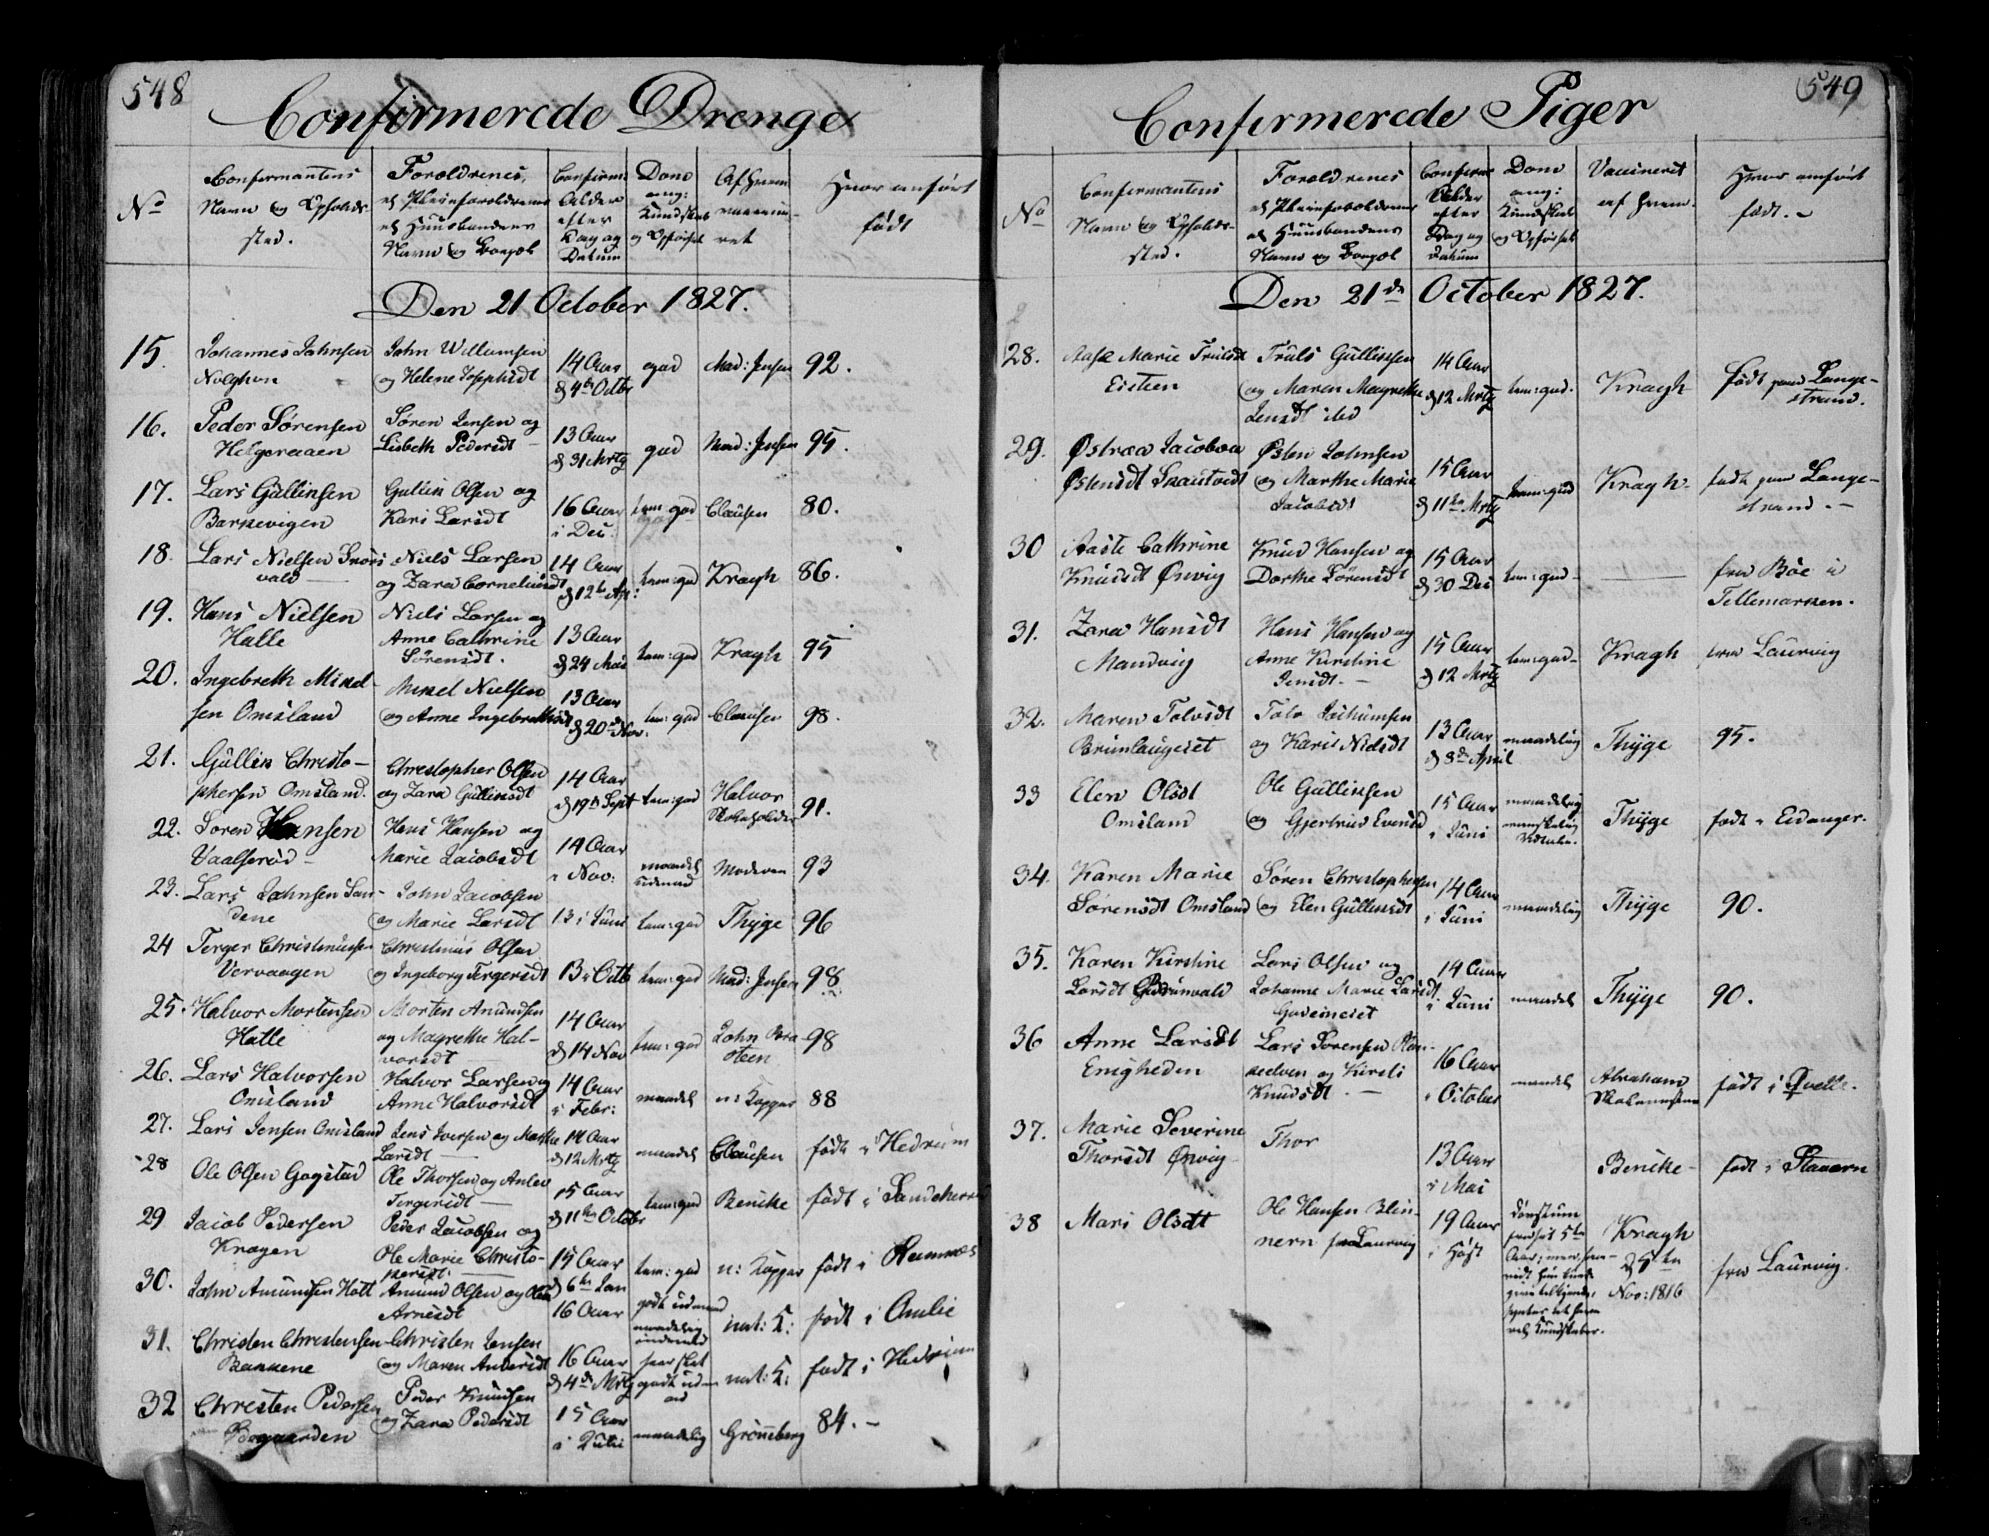 548
Confirmerede Drenge
No
Confirmantens
Navn og Opholds-
sted.
Forældrenes,
Navn og Bopæl
Alder
efter
Dag og
Datum
Dom
ang:
Kundskab
og Opførsel
Af hvem
Hvor anført
født
Den 21 October 1827.
15. Johannes Johnsen
John Willumsen
og Helene Josephsdt
14 Aar
d 4de Octbr
god
Mad: Jensen
92.
16. Peder Sørensen
Helgeraaen
Søren Jensen og
Lisbeth Pedersdt
13 Aar
d 31 Mrtz
god
Mad: Jensen
95.
17. Lars Gullisen
Barnevigen
Gullik Olsen og
Kari Larsdt
16 Aar
i Dec:
tem: god
Clausen
80.
18. Lars Nielsen
Niels Larsen
og Zara Corneliusdt
14 Aar
d 12te Ap:
tem: god
Kragh
86.
19. Hans Nielsen
Halle
Niels Larsen og
Anne Cathrine
Sørensdt.
13 Aar
d 24 Mai
tem: god
Kragh
95
20. Ingebreth Mikel-
sen Omsland
Mikel Nielsen
og Anne Ingebrethsdt
13 Aar
d 20de Nov.
tem: god
Clausen
98.
21. Gullik Christo-
phersen Omsland.
Christopher Olsen
og Zara Gulliksdt
14 Aar
d 19de Sept
tem: god
Halvor
Skoleholder
91.
22. Søren Hansen
Vaalserød
Hans Hansen og
Marie Jacobsdt
14 Aar
i Nov:
maadel
udenad
Moderen
93
23. Lars Johnsen San-
dene
John Jacobsen
og Marie Larsdt
13 i Juni
tem: god
Thyge
96
24 Terger Christensen
Vervaagen
Christenus Olsen
og Ingeborg Tergersdt
13 i Octb
tem: god
Mad: Jensen
98
25. Halvor Mortensen
Halle
Morten Anundsen
og Magrethe Hal-
vorsdt
14 Aar
d 14 Nov
tem: god
John Bra-
steen
98
26. Lars Halvorsen
Omsland
Halvor Larsen og
Anne Halvorsdt
14 Aar
i Febr:
maadel
n: Kopper
88
27. Lars Jensen Omsland
Jens Iversen og Marthe
Larsdt
14 Aar
d 12 Mrtz
maadel
Clausen
født i Hedrum
28 Ole Olsen Gogstad
Ole Thorsen og Anlev
Tergersdt
15 Aar
d 11te Octobr
tem: god
Bencke
født i Sandeherred
29 Jacob Pedersen
Kragen
Peder Jacobsen og
Ole Marie Christo-
phersdt.
15 Aar
d 6te Jan
tem: god
n: Kopper
født i Remmes
30. John Amundsen Holt
Amund Olsen og
Arnesdt
16 Aar
godt udenad
maadelig
indenad
nat: K:
født i Omlie
31. Christen Christensen
Bakkene
Christen Jensen
og Maren Andersdt
16 Aar
d 4de Mrtz
nat: K:
født i Hedrum
32 Christen Pedersen
Bøgaarden
Peder Knudsen
og Zara Pedersdt
15 Aar
i Juli
maadelig
Grönneberg
84. -
549
Confirmerede Piger
No
Confirmantens
Navn og Opholds-
sted.
Forældrenes
Navn og Bopæl
Alder
efter
Dag og
Datum
Dom
ang:
Kundskab
og Opførsel
Vaccineret
af hvem.
Hvor anført
født. -
Den 21de October 1827.
28. Aase Marie Trulsdt
Eisteen
Truls Gullisen
og Maren Magrethe
Jensdt ibd
14 Aar
d 12 Mrtz
tem: god.
Kragh
født paa Lange-
strand.
29. Østræa Jacobæa
Østensdt Saastvedt
Østen Johnsen
og Marthe Marie
Jacobsdt
15 Aar
d 11te Mrtz
tem: god
Kragh.
født paa Lange-
strand. -
30 Aaste Cathrine
Knudsdt Ønvig
Knud Hansen og
Dorthe Sörensdt
15 Aar
d 30 Dec
tem: god
fra Böe i
Tellemarken.
31. Zara Hansdt
Manvig
Hans Hansen og
Anne Kirstine
Jensdt. -
15 Aar
d 12 Mrtz
tem: god
Kragh
fra Laurvig
32. Maren Tolvsdt
Brunlaugeiet
Tolv Jochumsen
og Karis Nielsdt
13 Aar
d 8de April
maadelig
Thyge
95.
33 Elen Olsdt
Omsland
Ole Gullisen
og Gjertrud Evensd
15 Aar
i Juni
maadelig
Thyge
født i Eidanger.
34. Karen Marie
Sørensdt Omsland
Søren Christophersen
og Elen Gulliksdt
14 Aar
i Juni
maadelig
Thyge
90.
35. Karen Kirstine
Larsdt
Lars Olsen og
Johanne Marie Larsdt
14 Aar
i Juni
maadel
Thyge
90.
36 Anne Larsdt
Enigheden
Lars Sørensen
og Kirsti
Knudsdt. -
16 Aar
i October
maadel
Abraham
født i Qvelle.
37. Marie Severine
Thorsdt Ønvig
Thor
13 Aar
i Mai
Bencke
født i Stavern
38 Mari Olsdt
Ole Hansen Blin-
nern fra Laurvig
19 Aar
i Høst
Kragh
d 5te
Nov: 1816
fra Laurvig.